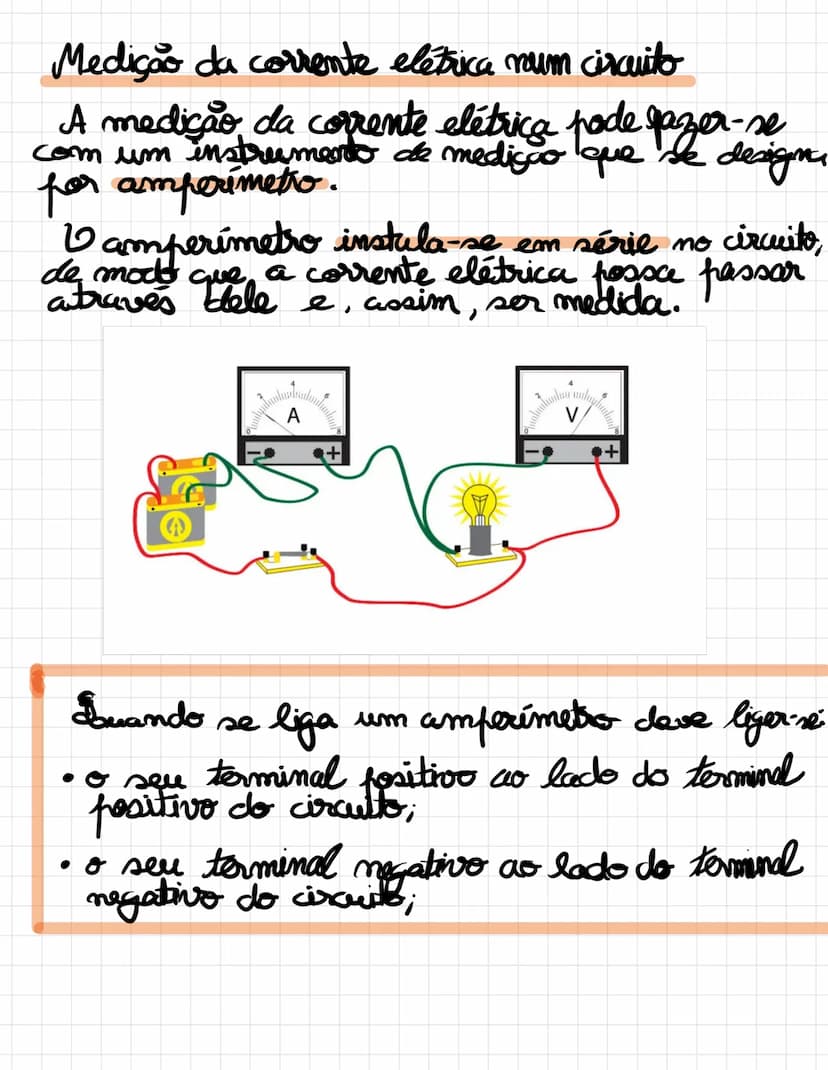 Medição da corrente elétrica num circuito
A medição da corrente elétrica pode fazer-se
com um instrumento de medição que se designa
por amperímetro.
O amperímetro instala-se em série no circuito,
de modo que a corrente elétrica possa passar
através dele e, assim, ser medida.
0 2 4 6 8
A
- +
0 2 4 6 8
V
- +
Quando se liga um amperímetro deve ligar-se:
• o seu terminal positivo ao lado do terminal
positivo do circuito;
• o seu terminal negativo ao lado do terminal
negativo do circuito;